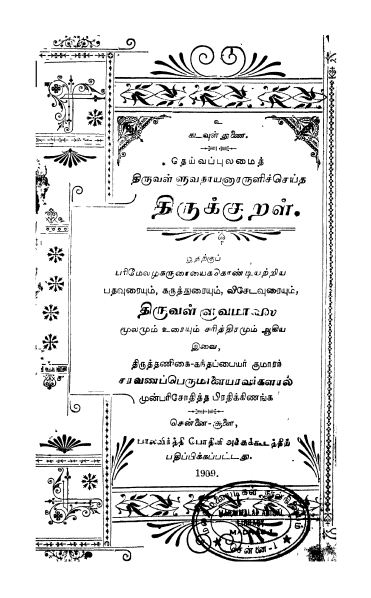 உ
கடவுள் துணை.
தெய்வப்புலமைத்
திருவள்ளுவநாயனாரருளிச்செய்த
திருக்குறள்.
இதற்குப்
பரிமேலழகருரையைக்கொண்டியற்றிய
பதவுரையும், கருத்துரையும், விசேடவுரையும்,
திருவள்ளுவமாலை
மூலமும் உரையும் சரித்திரமும் ஆகிய
இவை,
திருத்தணிகை-கந்தப்பையர் குமாரர்
சரவணப்பெருமாளையரவர்களால்
முன்பரிசோதித்த பிரதிக்கிணங்க
சென்னை-சூளை,
அச்சுக்கூடத்திற்
பதிப்பிக்கப்பட்டது.
1909.
LIBRARY
சென்னை-1